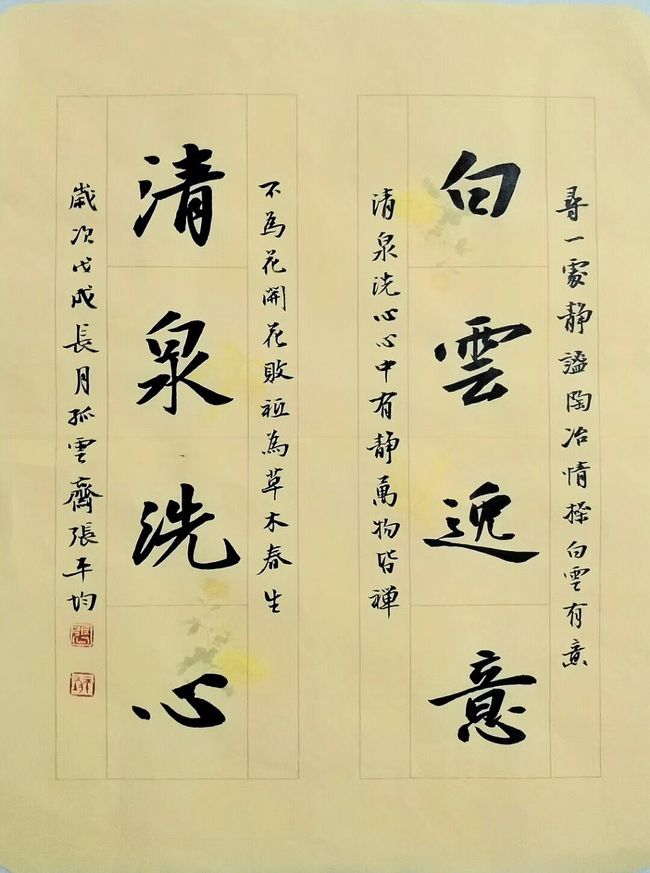 尋一處静謐陶冶情操白雲有意
白雲逸意
清泉洗心心中有静萬物皆禅
不為花開花敗祗為草木春生
清泉洗心
歲次戊戌長月孤雲齋張平均